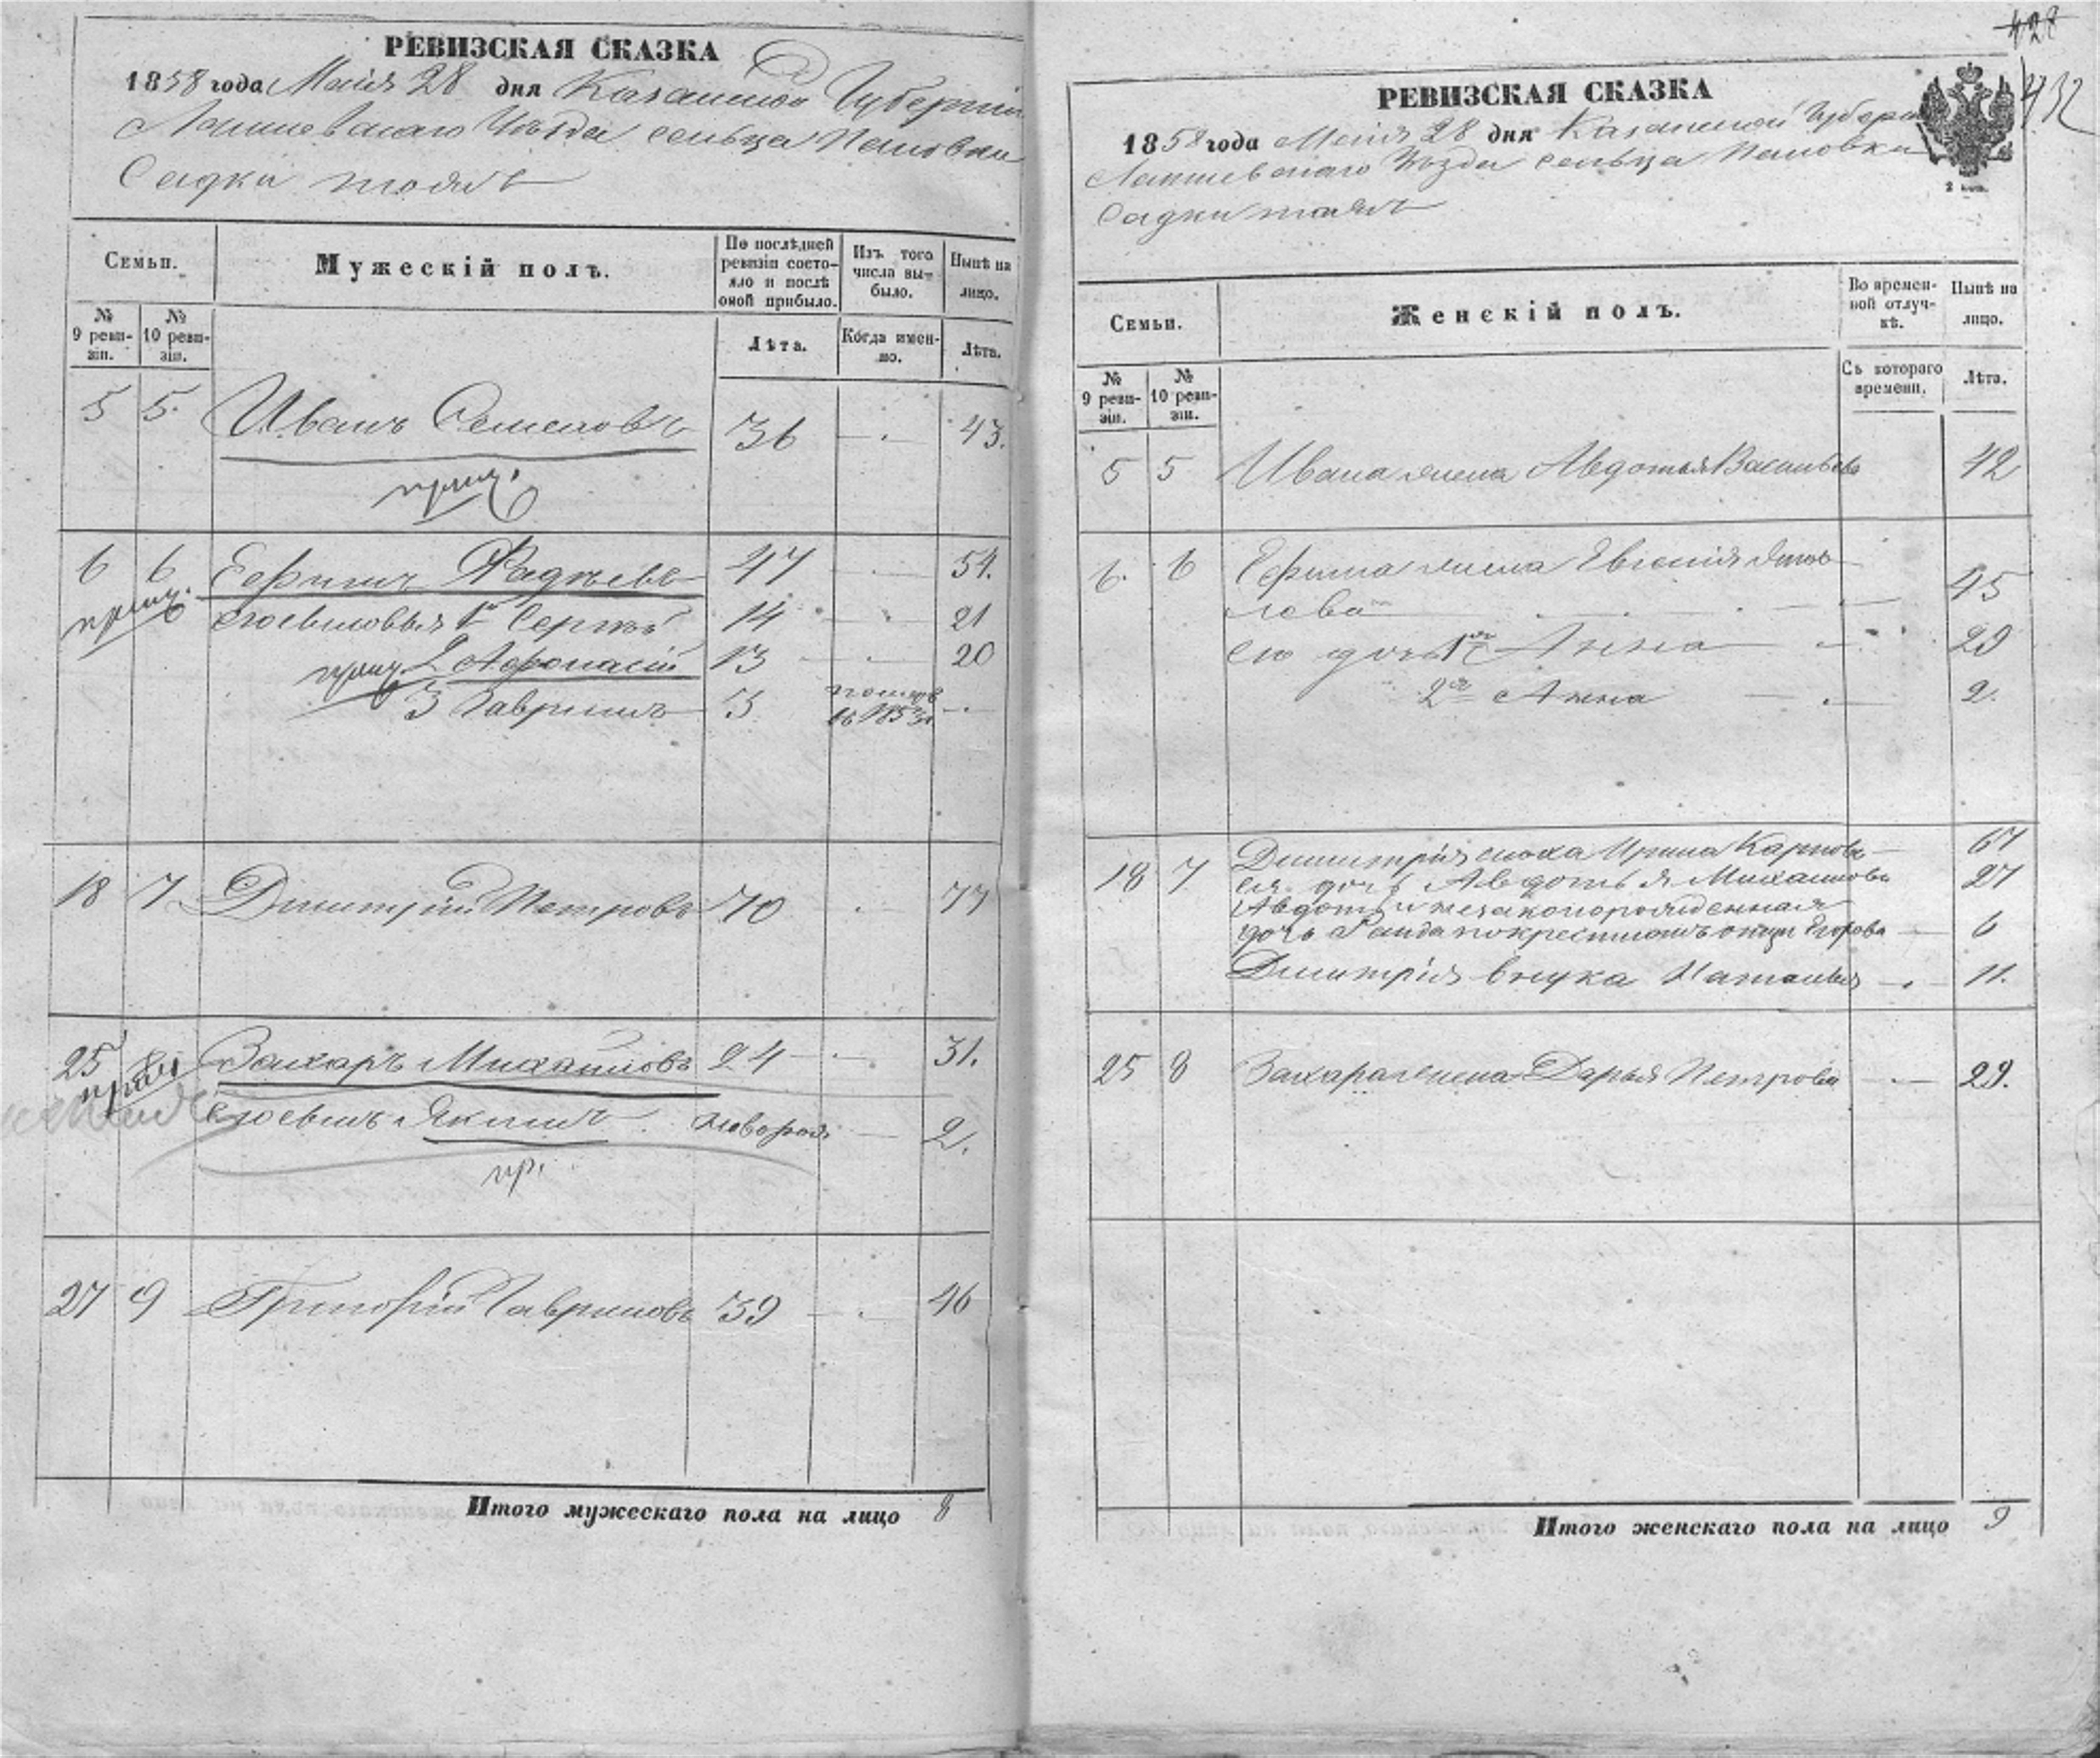 РЕВИЗСКАЯ СКАЗКА
1858 года Маiя 28 дня Казанской Губернiи
Лаишевскаго Уѣзда сельца Поповки
Садки тожъ
Семьи.
Мужескiй полъ.
По послѣдней ревизiи состояло и послѣ оной прибыло.
Изъ того числа выбыло.
Нынѣ на лицо.
№ 9 ревизiи.
№ 10 ревизiи.
Лѣта.
Когда именно.
Лѣта.
5 5. Иванъ Семеновъ 36 — 43.
6 6 Ефимъ Фадѣевъ 47 — 54.
его сыновья 1й Сергѣй 14 21
2 Афонасiй 13 — 20
3 Гаврилъ 3 — .
18 7 Дмитрiй Петровъ 70 . 77
25 8 Захаръ Михайловъ 24 — 31.
его сынъ Якимъ новорож — 2.
пр.
27 9 Григорiй Гавриловъ 39 — 46
Итого мужескаго пола на лицо 8
428
432
РЕВИЗСКАЯ СКАЗКА
1858 года Маiя 28 дня Казанской Губернiи
Лаишевскаго Уѣзда сельца Поповки
Садки тожъ
2 коп.
Семьи.
Женскiй полъ.
Во временной отлучкѣ.
Нынѣ на лицо.
№ 9 ревизiи.
№ 10 ревизiи.
Съ котораго времени.
Лѣта.
5 5 Ивана жена Авдотья Васильева 42
6. 6 Ефима жена Евгенiя
лева — 45
его дочь 1я Анна — 29
2я Анна — 2.
18 7 Дмитрiя сноха Ирина Карпова — 67
ея дочь Авдотья Михайлова 27
Авдотьи незаконорожденная
дочь по крестномъ отцу Егорова — 6
Дмитрiя внука Наталья — 11.
25 8 Захара жена Дарья Петрова — 29.
Итого женскаго пола на лицо 9